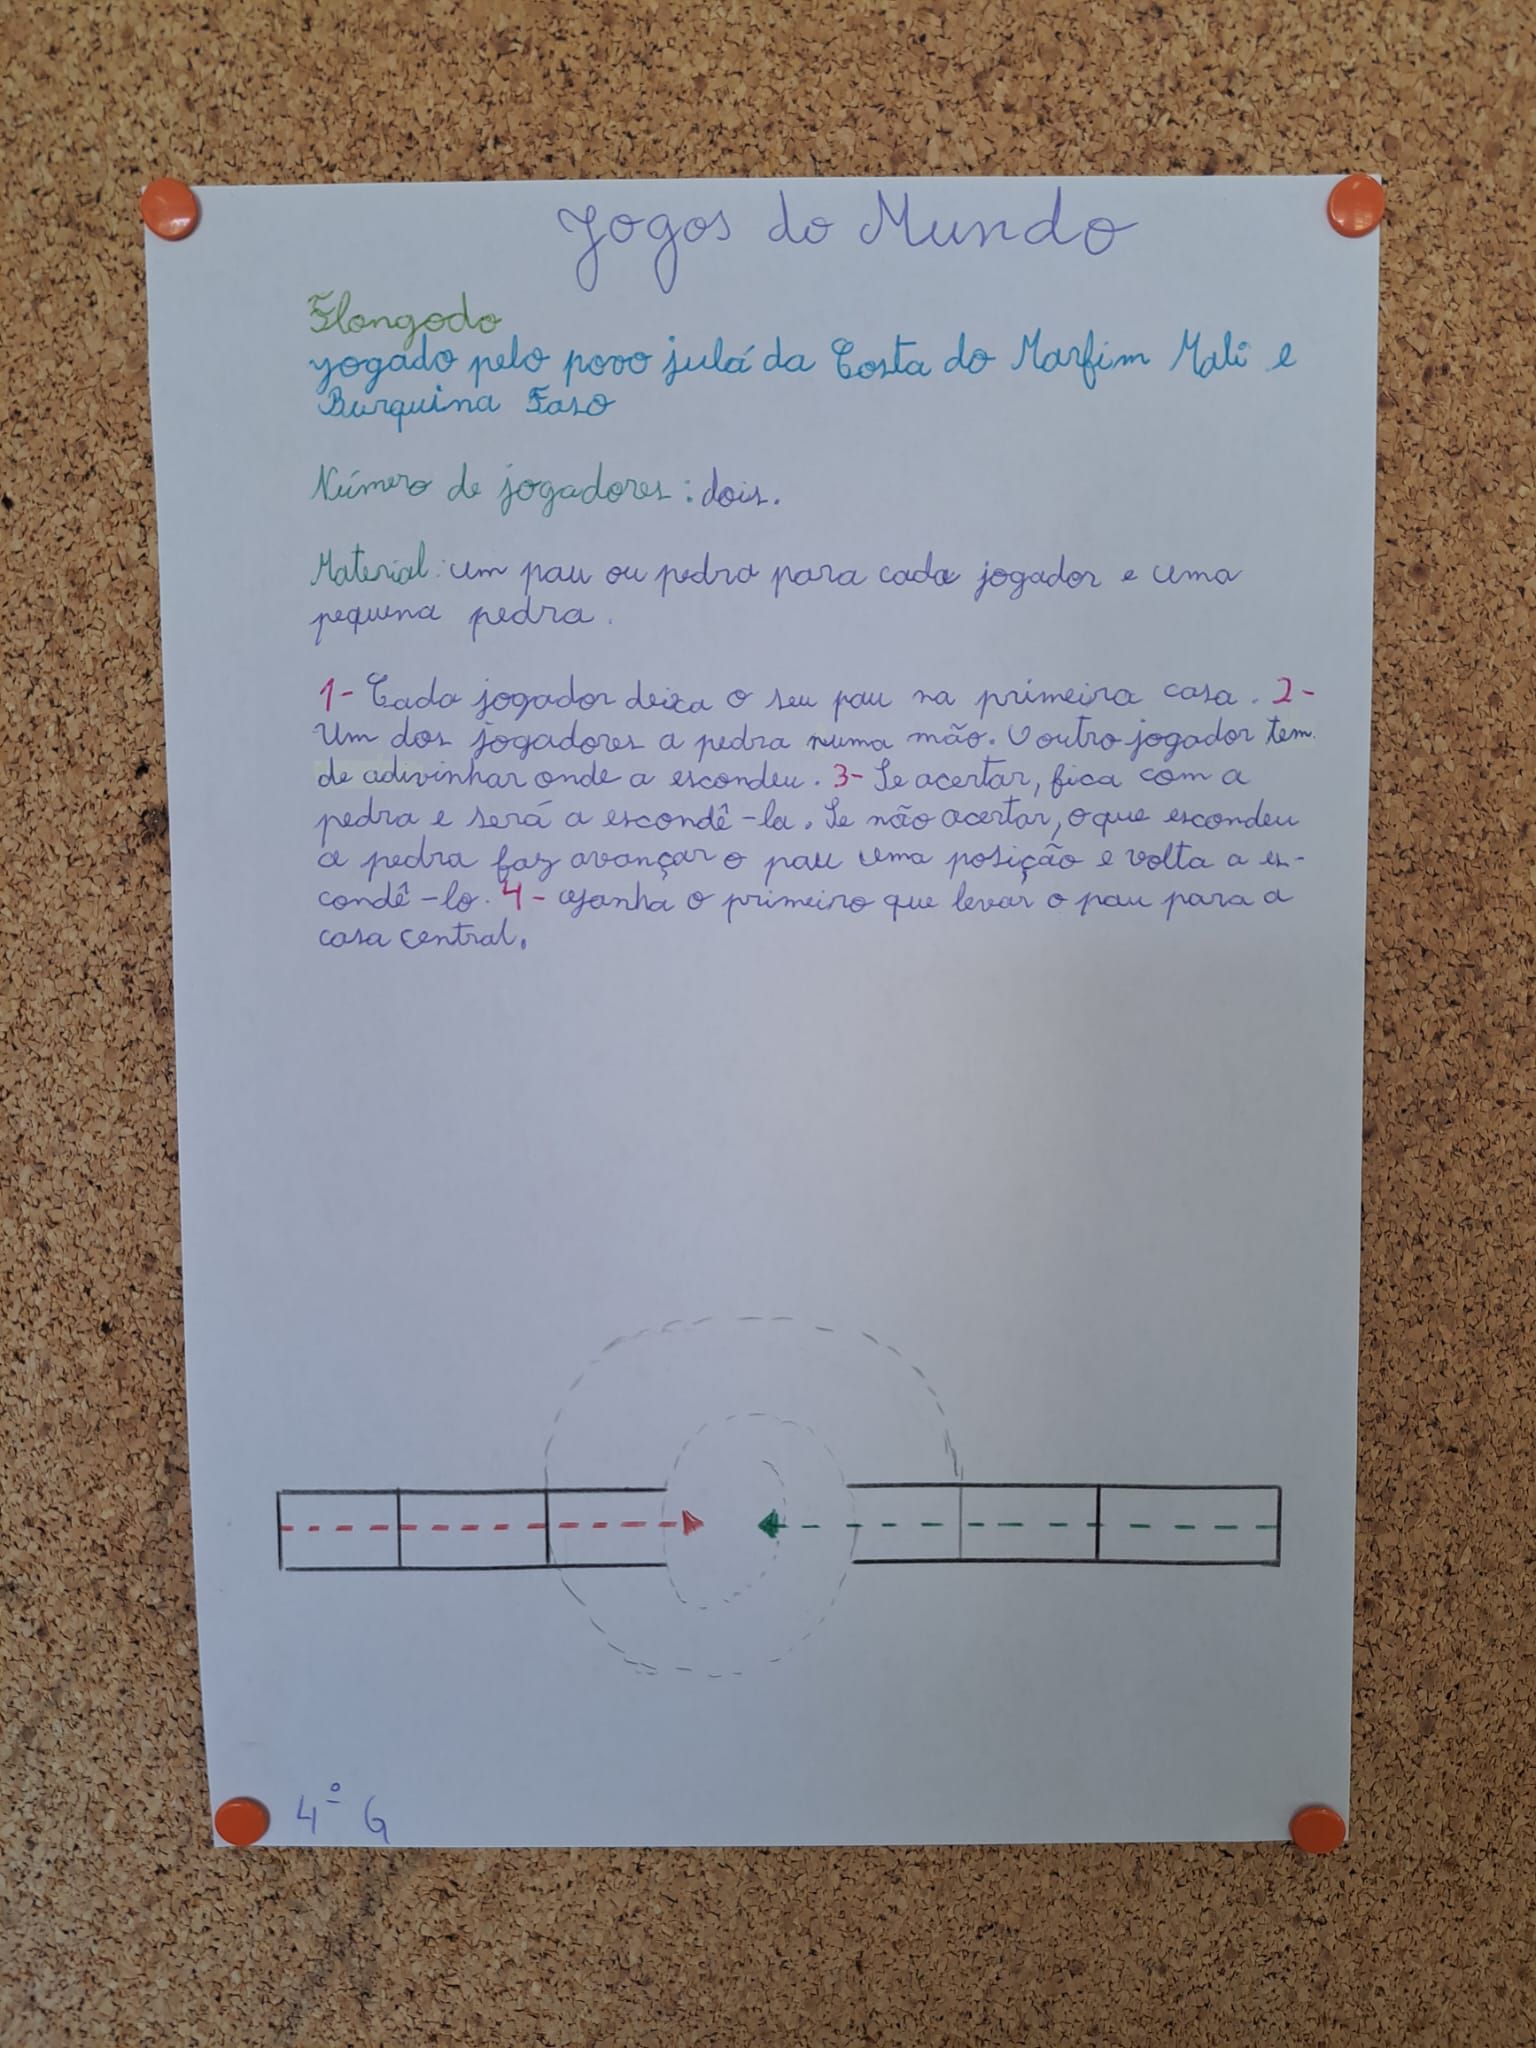 Jogos do Mundo
Flongodo
jogado pelo povo julá da Costa do Marfim Mali e
Burquina Faso
Número de jogadores : dois.
Material: um pau ou pedra para cada jogador e uma
pequena pedra.
1- Cada jogador deixa o seu pau na primeira casa. 2-
Um dos jogadores a pedra numa mão. O outro jogador tem
de adivinhar onde a escondeu. 3- Se acertar, fica com a
pedra e será a escondê-la. Se não acertar, o que escondeu
a pedra faz avançar o pau uma posição e volta a es-
condê-lo. 4- Ganha o primeiro que levar o pau para a
casa central.
4º G